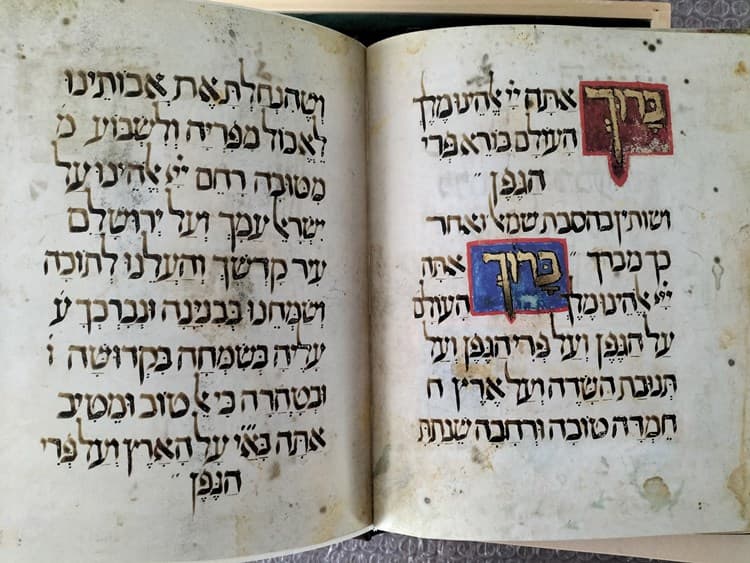 ברוך אתה ייי אלהינו מלך
העולם בורא פרי
הגפן
ושותין בהסבת שמאל ואחר
כך מברך ברוך אתה
ייי אלהינו מלך העולם
על הגפן ועל פרי הגפן ועל
תנובת השדה ועל ארץ ח
חמדה טובה ורחבה שנתת
ושהנחלת את אבותינו
לאכול מפריה ולשבוע מ
מטובה רחם ייי אלהינו על
ישראל עמך ועל ירושלם
עיר קדשך והעלנו לתוכה
ושמחנו בבנינה ונברכך ע
עליה בשמחה בקדושה ו
ובטהרה כי אל טוב ומטיב
אתה באי על הארץ ועל פרי
הגפן